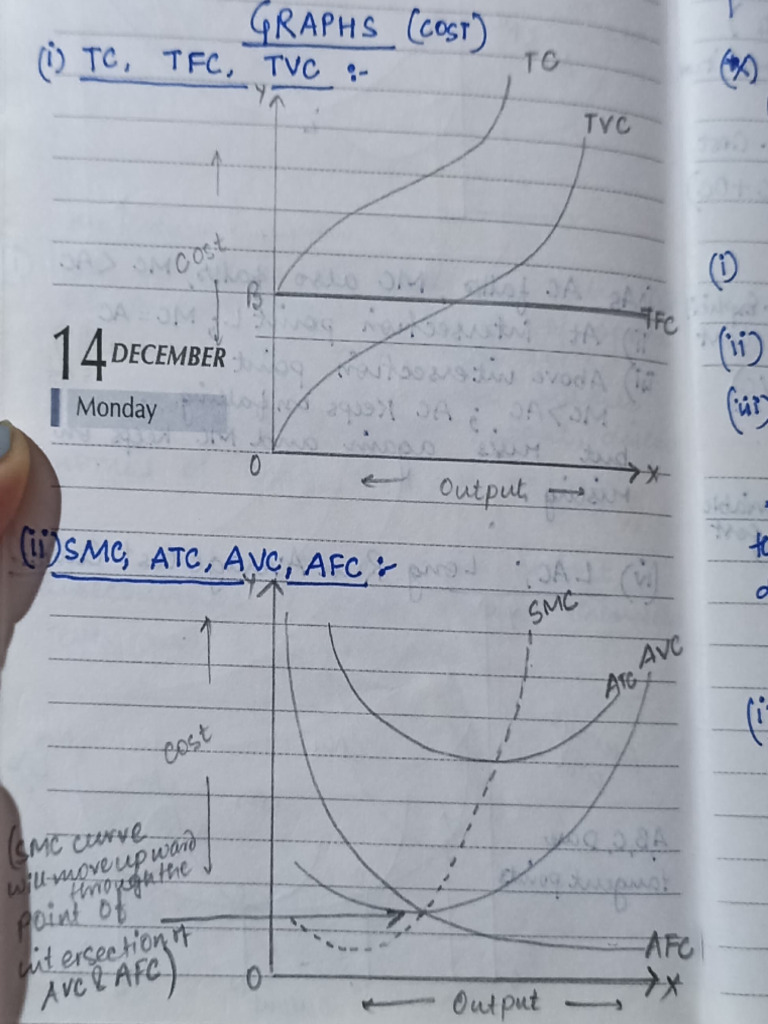 GRAPHS (COST)
(i) TC, TFC, TVC :-
Y
TC
TVC
Cost
B
TFC
14 DECEMBER
Monday
O
X
← Output →
(ii) SMC, ATC, AVC, AFC :-
Y
SMC
AVC
ATC
cost
(SMC curve
will move upward
through the
point of
intersection of
AVC & AFC)
AFC
O
X
← Output →
(*)
(i)
(ii)
(iii)